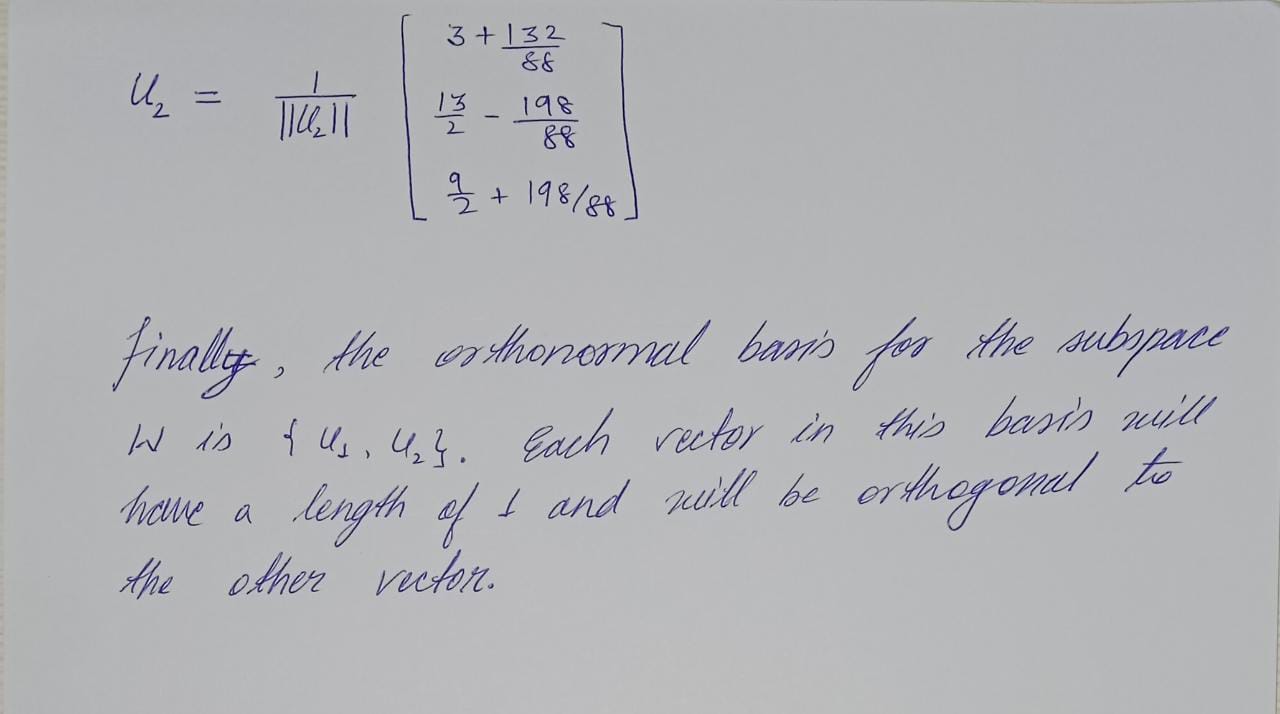 U₂ = 1/||U₂|| [ 3 + 132/88
13/2 - 198/88
9/2 + 198/88 ]
finally, the orthonormal basis for the subspace
W is { U₁, U₂}. Each vector in this basis will
have a length of 1 and will be orthogonal to
the other vector.